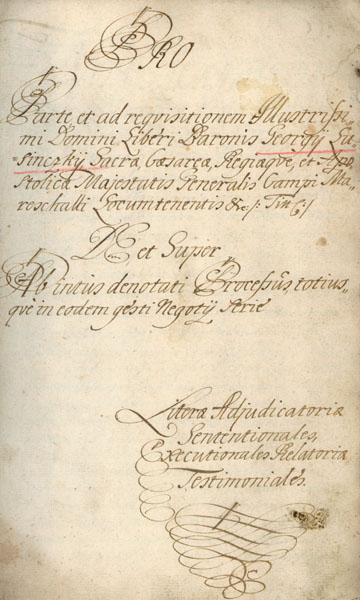 PRO
Parte et ad requisitionem Illustrissi-
mi Domini Liberi Baronis Georgij Lu-
sinczky Sacrae Caesareae, Regiaque, et Apo-
stolicae Majestatis Generalis Campi Ma-
reschalli Locumtenentis &c /: Tit: /
De et Super
Ab intus denotati Processus, totius-
que in eodem gesti Negotij Serie
Literae Adjudicatoriae
Sententionales,
Executionales Relatoriae
Testimoniales.